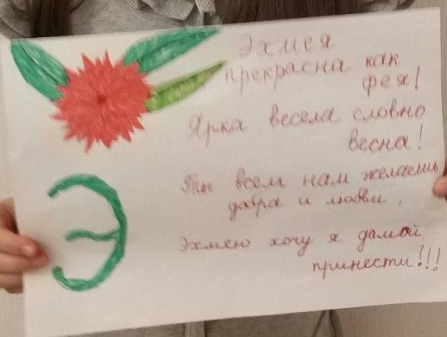 Эхмея
прекрасна как
фея!
Ярка весела словно
весна!
Ты всем нам желаешь
добра и любви,
Эхмею хочу я домой
принести!!!
Э